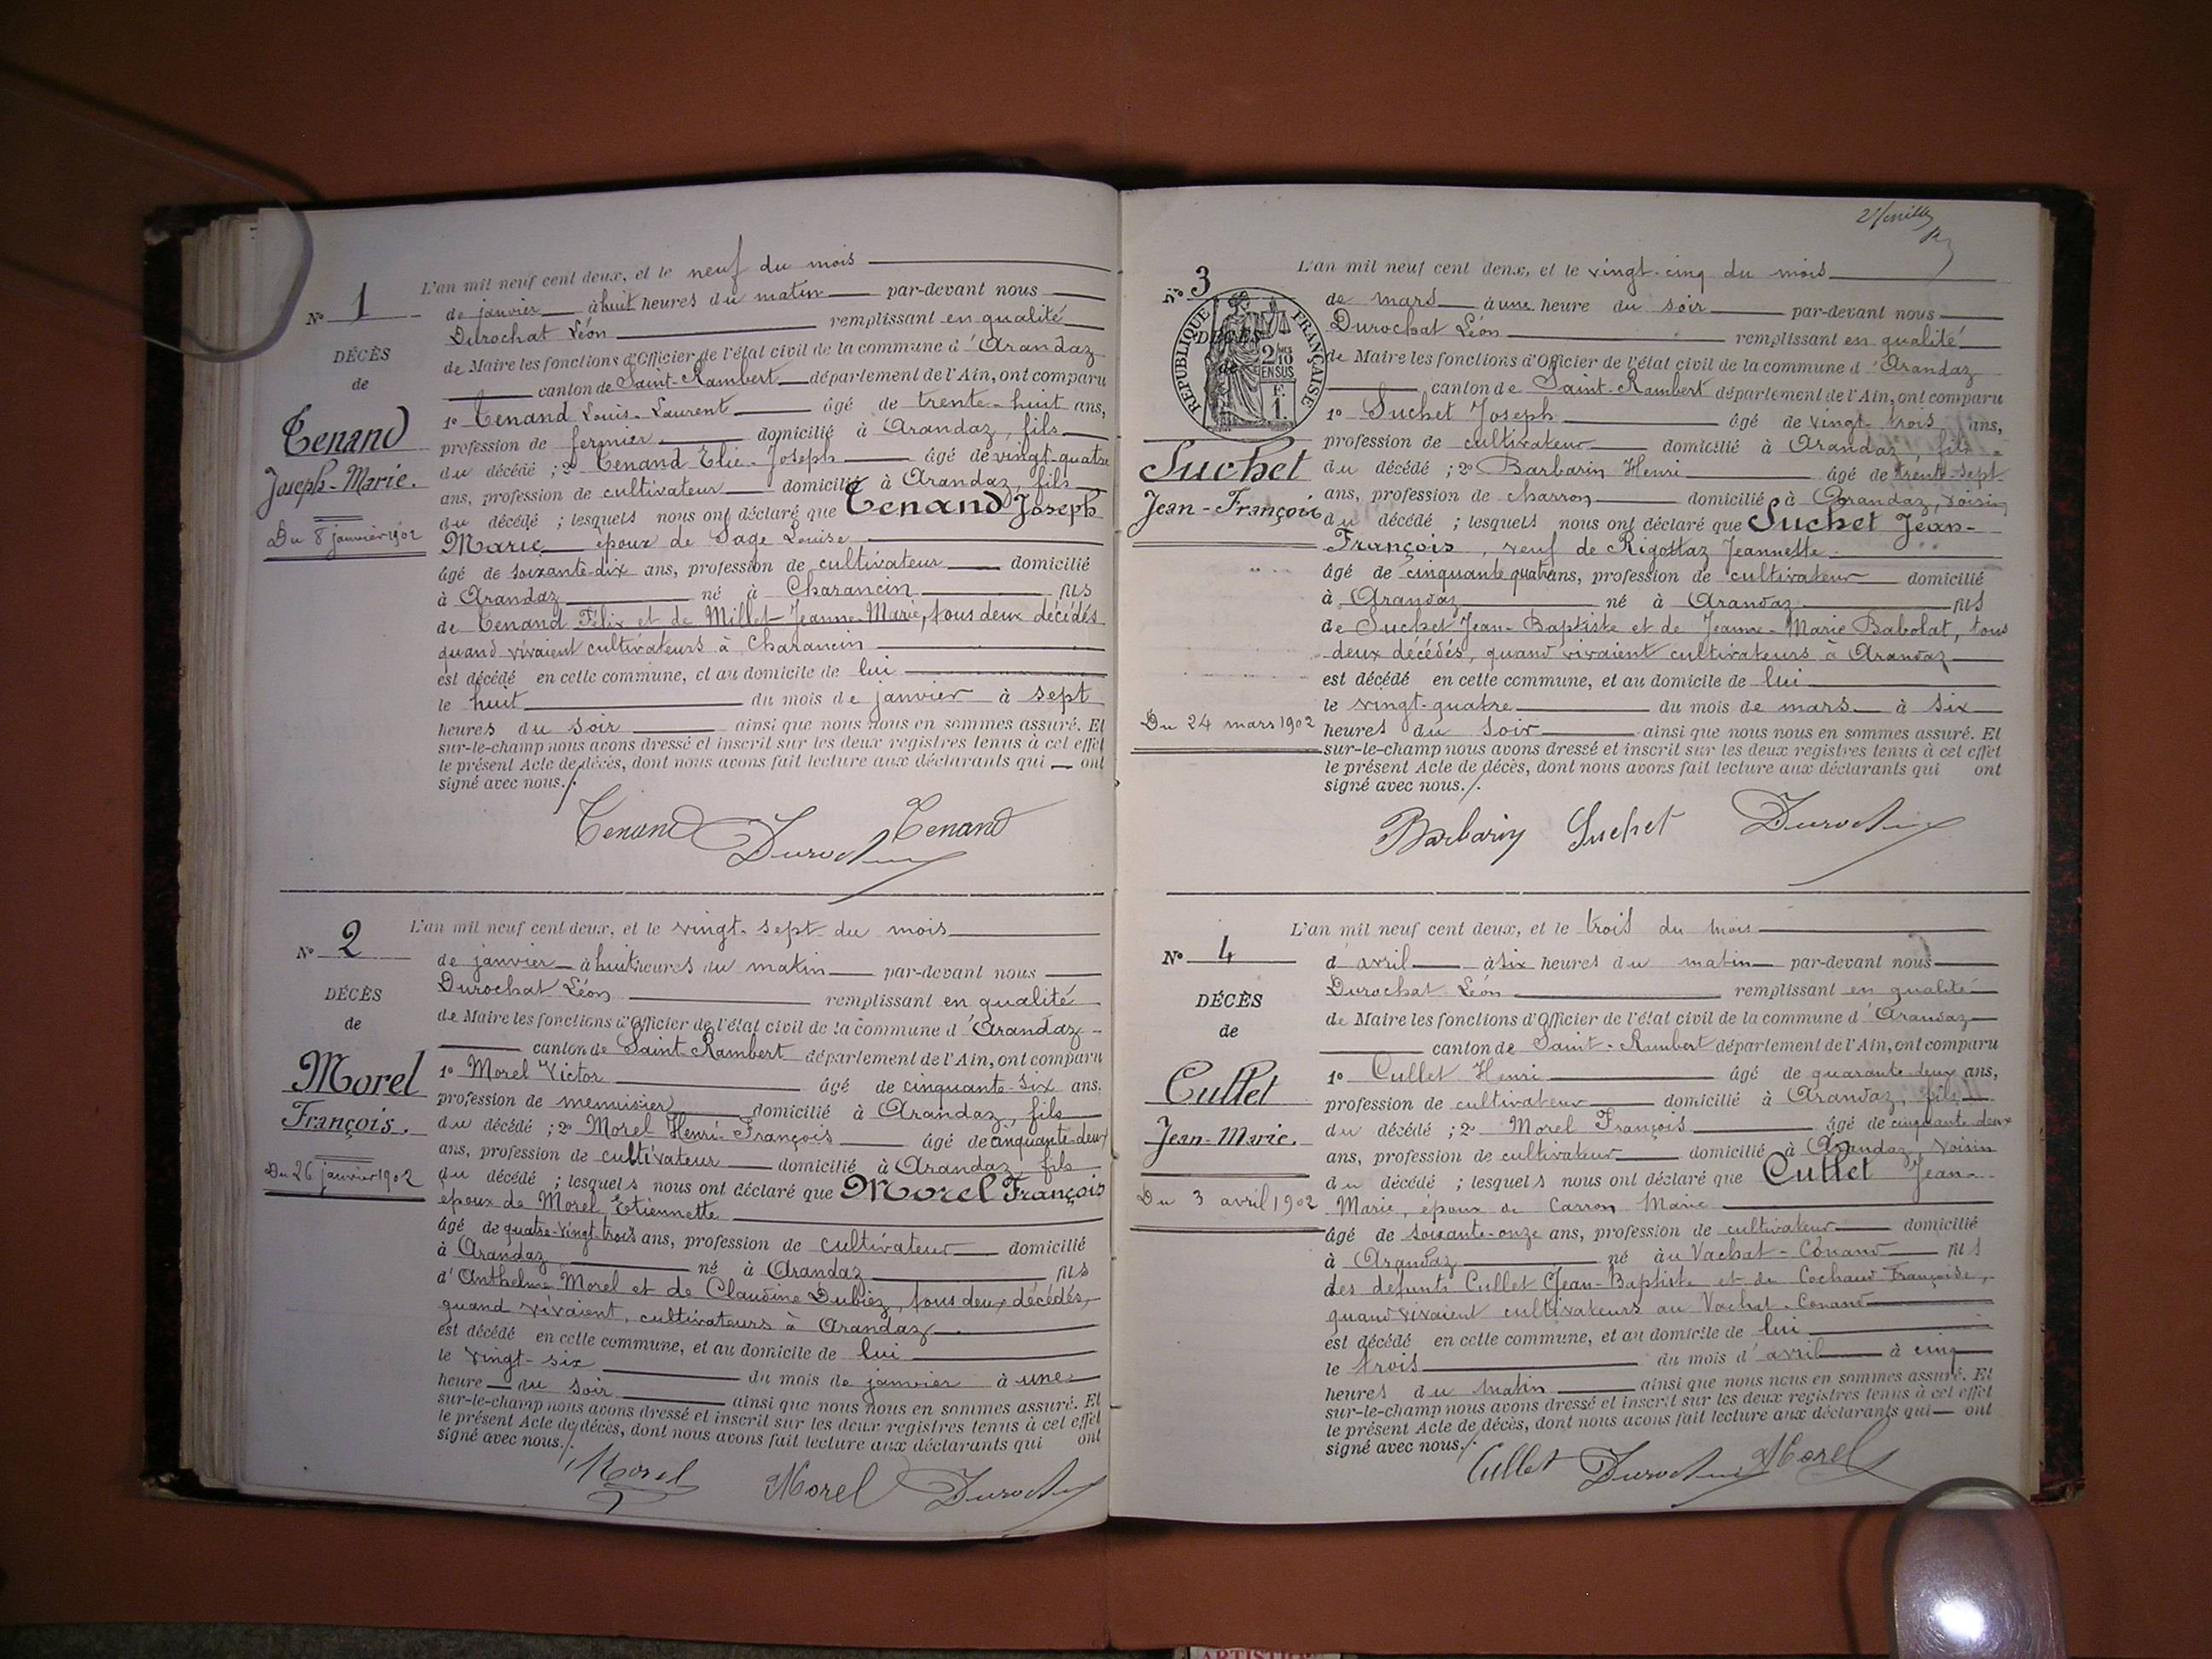 L'an mil neuf cent deux, et le neuf du mois
N° 1
de janvier à huit heures du matin par-devant nous
Durochat Léon remplissant en qualité
DÉCÈS
de Maire les fonctions d'Officier de l'état civil de la commune d'Arandaz
de
canton de Saint-Rambert département de l'Ain, ont comparu
1° Tenand Louis-Laurent âgé de trente-huit ans,
Tenand
profession de fermier domicilié à Arandaz, fils
Joseph-Marie.
du décédé ; 2° Tenand Elie-Joseph âgé de vingt-quatre
ans, profession de cultivateur domicilié à Arandaz, fils
du décédé ; lesquels nous ont déclaré que Tenand Joseph
Du 8 janvier 1902
Marie époux de Sage Louise
âgé de soixante-dix ans, profession de cultivateur domicilié
à Arandaz né à Charancin fils
de Tenand Félix et de Millet Jeanne-Marie, tous deux décédés
quand vivaient cultivateurs à Charancin
est décédé en cette commune, et au domicile de lui
le huit du mois de janvier à sept
heures du soir ainsi que nous nous en sommes assuré. Et
sur-le-champ nous avons dressé et inscrit sur les deux registres tenus à cet effet
le présent Acte de décès, dont nous avons fait lecture aux déclarants qui ont
signé avec nous./.
Tenand Durochat Tenand
L'an mil neuf cent deux, et le vingt-sept du mois
N° 2
de janvier à huit heures du matin par-devant nous
Durochat Léon remplissant en qualité
DÉCÈS
de Maire les fonctions d'Officier de l'état civil de la commune d'Arandaz
de
canton de Saint-Rambert département de l'Ain, ont comparu
Morel
1° Morel Victor âgé de cinquante-six ans.
profession de menuisier domicilié à Arandaz, fils
François.
du décédé ; 2° Morel Henri-François âgé de cinquante-deux
ans, profession de cultivateur domicilié à Arandaz, fils
Du 26 janvier 1902
du décédé ; lesquels nous ont déclaré que Morel François
époux de Morel Etiennette
âgé de quatre-vingt-trois ans, profession de cultivateur domicilié
à Arandaz né à Arandaz fils
d'Anthelme Morel et de Claudine Dubiez, tous deux décédés,
quand vivaient, cultivateurs à Arandaz
est décédé en cette commune, et au domicile de lui
le vingt-six du mois de janvier à une
heure du soir ainsi que nous nous en sommes assuré. Et
sur-le-champ nous avons dressé et inscrit sur les deux registres tenus à cet effet
le présent Acte de décès, dont nous avons fait lecture aux déclarants qui ont
signé avec nous./.
Morel Morel Durochat
L'an mil neuf cent deux, et le vingt-cinq du mois
N° 3
de mars à une heure du soir par-devant nous
Durochat Léon remplissant en qualité
RÉPUBLIQUE FRANÇAISE
DÉCÈS
2/10 EN SUS
F. 1.
de
de Maire les fonctions d'Officier de l'état civil de la commune d'Arandaz
canton de Saint-Rambert département de l'Ain, ont comparu
1° Suchet Joseph âgé de vingt-trois ans,
profession de cultivateur domicilié à Arandaz, fils
Suchet
du décédé ; 2° Barbarin Henri âgé de trente-sept
Jean-François
ans, profession de charron domicilié à Arandaz, voisin
du décédé ; lesquels nous ont déclaré que Suchet Jean-
François, veuf de Rigottaz Jeannette
âgé de cinquante quatre ans, profession de cultivateur domicilié
à Arandaz né à Arandaz fils
de Suchet Jean-Baptiste et de Jeanne-Marie Babolat, tous
deux décédés, quand vivaient cultivateurs à Arandaz
est décédé en cette commune, et au domicile de lui
le vingt-quatre du mois de mars à six
Du 24 mars 1902
heures du soir ainsi que nous nous en sommes assuré. Et
sur-le-champ nous avons dressé et inscrit sur les deux registres tenus à cet effet
le présent Acte de décès, dont nous avons fait lecture aux déclarants qui ont
signé avec nous./.
Barbarin Suchet Durochat
L'an mil neuf cent deux, et le trois du mois
N° 4
d'avril à six heures du matin par-devant nous
Durochat Léon remplissant en qualité
DÉCÈS
de Maire les fonctions d'Officier de l'état civil de la commune d'Arandaz
de
canton de Saint-Rambert département de l'Ain, ont comparu
Cullet
1° Cullet Henri âgé de quarante-deux ans,
profession de cultivateur domicilié à Arandaz, fils
Jean-Marie.
du décédé ; 2° Morel François âgé de cinquante-deux
ans, profession de cultivateur domicilié à Arandaz, voisin
du décédé ; lesquels nous ont déclaré que Cullet Jean-
Du 3 avril 1902
Marie, époux de Carron Marie
âgé de soixante-onze ans, profession de cultivateur domicilié
à Arandaz né au Vachat-Conand fils
des defunts Cullet Jean-Baptiste et de Cochaud Françoise,
quand vivaient cultivateurs au Vachat-Conand
est décédé en cette commune, et au domicile de lui
le trois du mois d'avril à cinq
heures du matin ainsi que nous nous en sommes assuré. Et
sur-le-champ nous avons dressé et inscrit sur les deux registres tenus à cet effet
le présent Acte de décès, dont nous avons fait lecture aux déclarants qui ont
signé avec nous./.
Cullet Durochat Morel
ARTISTIQUE